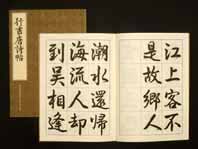 江上客不
是故鄉人
潮水還歸
海流人却
到吳相逢
行書唐詩帖